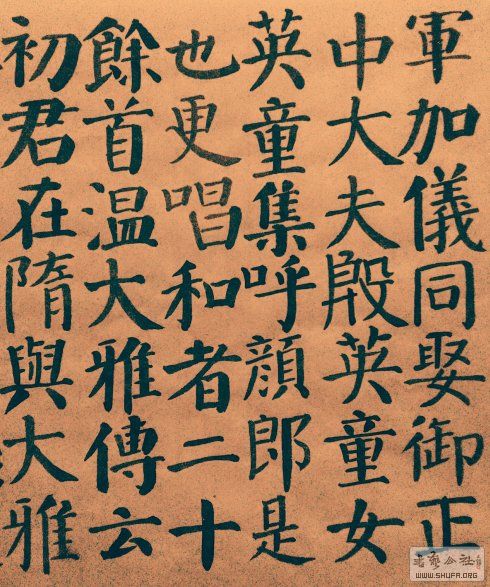 軍加儀同娶御正
中大夫殷英童女
英童集呼顏郎是
也更唱和者二十
餘首温大雅傳云
初君在隋與大雅
WWW.SHUFA.ORG